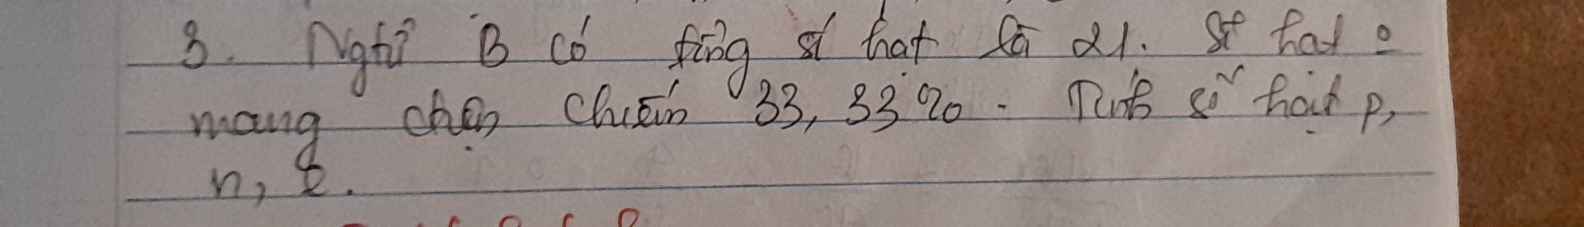 3. Ngtử B có tổng số hạt là 21. Số hạt o
mang điện chiếm 33,33%. Tính số hạt p,
n, e.